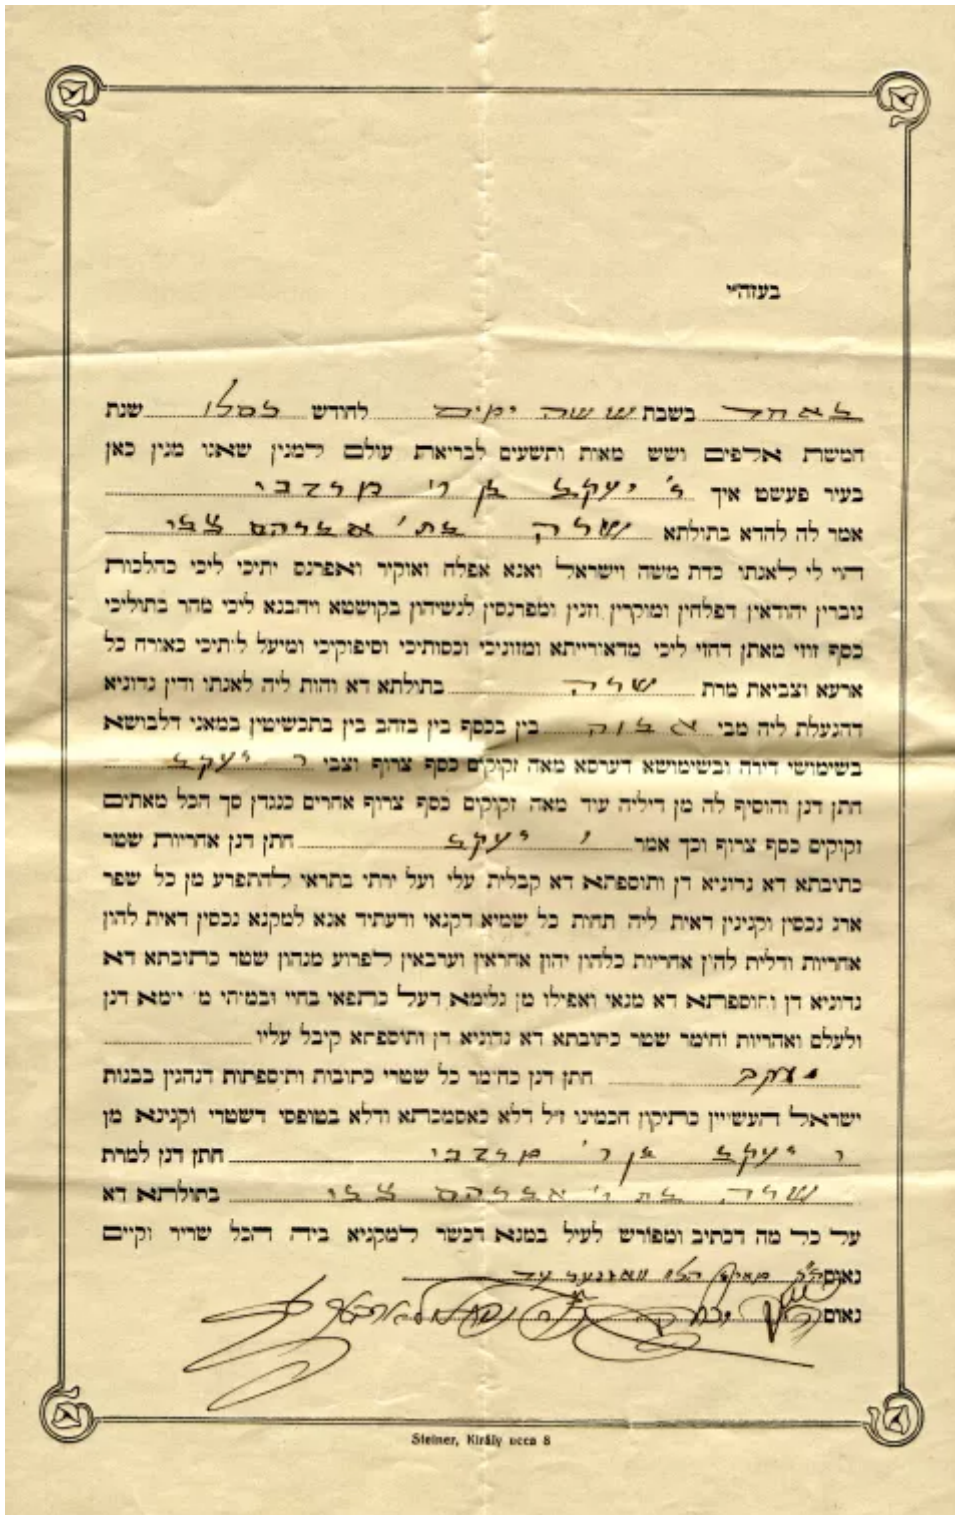 בעזהי״י
באחד בשבת ששה ימים לחודש כסלו שנת
חמשת אלפים ושש מאות ותשעים לבריאת עולם למנין שאנו מנין כאן
בעיר פעשט איך ר' יעקב בן ר' מרדכי
אמר לה להדא בתולתא שרה בת ר' אברהם צבי
הוי לי לאנתו כדת משה וישראל ואנא אפלח ואוקיר ואפרנס יתיכי ליכי כהלכות
גוברין יהודאין דפלחין ומוקרין וזנין ומפרנסין לנשיהון בקושטא ויהבנא ליכי מהר בתוליכי
כסף זוזי מאתן דחזי ליכי מדאורייתא ומזוניכי וכסותיכי וסיפוקיכי ומיעל לותיכי כאורח כל
ארעא וצביאת מרת שרה בתולתא דא והות ליה לאנתו ודין נדוניא
דהנעלת ליה מבי אבוה בין בכסף בין בזהב בין בתכשיטין במאני דלבושא
בשימושי דירה ובשימושא דערסא מאה זקוקים כסף צרוף וצבי ר יעקב
חתן דנן והוסיף לה מן דיליה עוד מאה זקוקים כסף צרוף אחרים כנגדן סך הכל מאתים
זקוקים כסף צרוף וכך אמר ר יעקב חתן דנן אחריות שטר
כתיבתא דא נדוניא דן ותוספתא דא קבלית עלי ועל ירתי בתראי להתפרע מן כל שפר
ארג נכסין וקנינין דאית ליה תחות כל שמיא דקנאי ודעתיד אנא למקנא נכסין דאית להון
אחריות ודלית להון אחריות כלהון יהון אחראין וערבאין לפרוע מנהון שטר כתובתא דא
נדוניא דן ותוספתא דא מנאי ואפילו מן גלימא דעל כתפאי בחיי ובמותי מן יומא דנן
ולעלם ואחריות וחומר שטר כתובתא דא נדוניא דן ותוספתא קיבל עליו
יעקב חתן דנן כחומר כל שטרי כתובות ותוספתות דנהגין בבנות
ישראל העשויין כתיקון חכמינו ז״ל דלא כאסמכתא ודלא בטופסי דשטרי וקנינא מן
ר יעקב בן ר' מרדכי חתן דנן למרת
שרה בת ר' אברהם צבי בתולתא דא
על כל מה דכתיב ומפורש לעיל במנא דכשר למקניא ביה הכל שריר וקים
נאום הלוי עד
נאום
Steiner, Király ucca 8